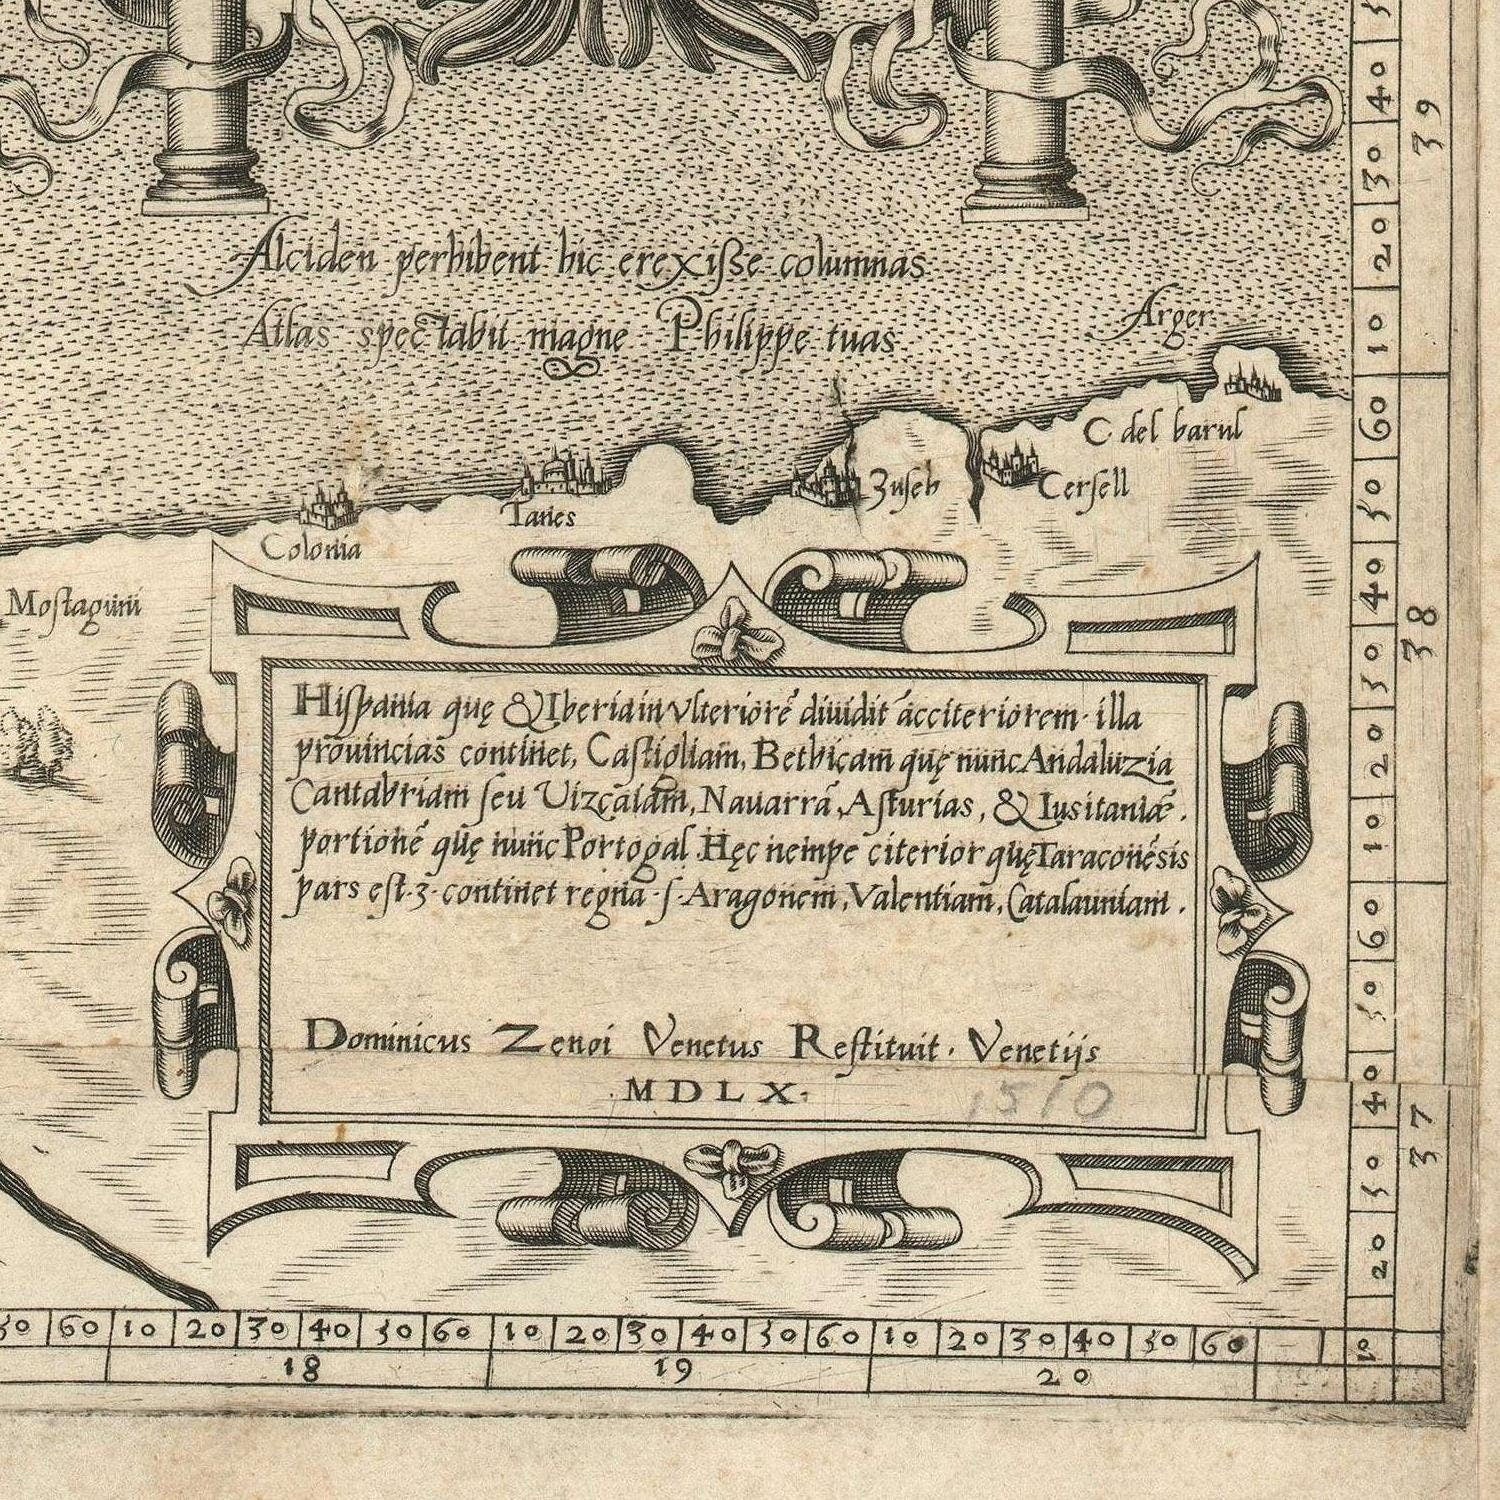 Alciden perhibent hic erexiſse columnas
Atlas spectabit magne Philippe tuas
Arger
C del barul
Cerſell
Zuſeh
Tanes
Colonia
Moſtagũni
Hiſpania quę & Iberia in vlteriorẽ diuidit ãcciteriorem· illa
prouincias continet, Caſtigliam̃, Bethicam̃ quę nunc Andaluzia
Cantabriam ſeu Uizcaiam̃, Nauarrã, Aſturias, & Iusitaniæ.
portionẽ quę nunc Portogal. Hęc nempe citerior quę Taraconẽsis
pars eſt·3· continet regna·ſ·Aragonem̃, Valentiam̃, Catalauniam.
Dominicus Zenoi Venetus Reſtituit· Venetijs
·M D L X·
1510
50 60 10 20 30 40 50 60 10 20 30 40 50 60 10 20 30 40 50 60
18 19 20
5
40
30
20
10
60
50
40
30
20
10
60
50
40
30
20
39
38
37